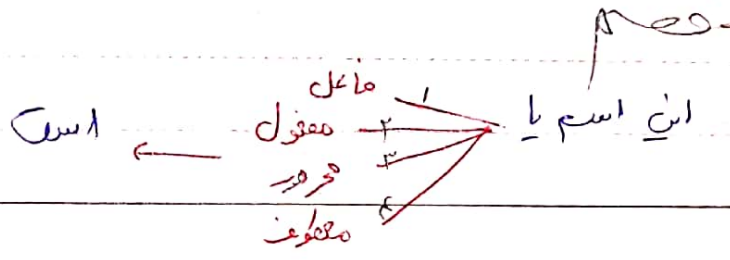 مهم
این اسم یا
۱ فاعل
۲ مفعول
۳ مجرور
۴ معطوف
است